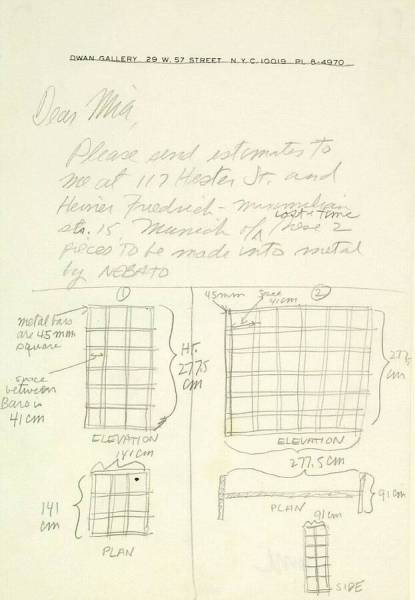 DWAN GALLERY 29 W. 57 STREET N.Y.C. 10019 PL 8-4970
Dear Mia,
Please send estimates to
me at 117 Hester St. and
Heiner Friedrich - maximilian
str. 15, Munich of these 2
cost & time
pieces to be made into metal
by NEBATO
①
metal bars
are 45 mm
square
space
between
Bars is
41 cm
HT.
277.5
cm
ELEVATION
141 cm
141
cm
PLAN
②
45 mm
space
41 cm
277.5
cm
ELEVATION
277.5 CM
91 cm
PLAN
91 cm
SIDE